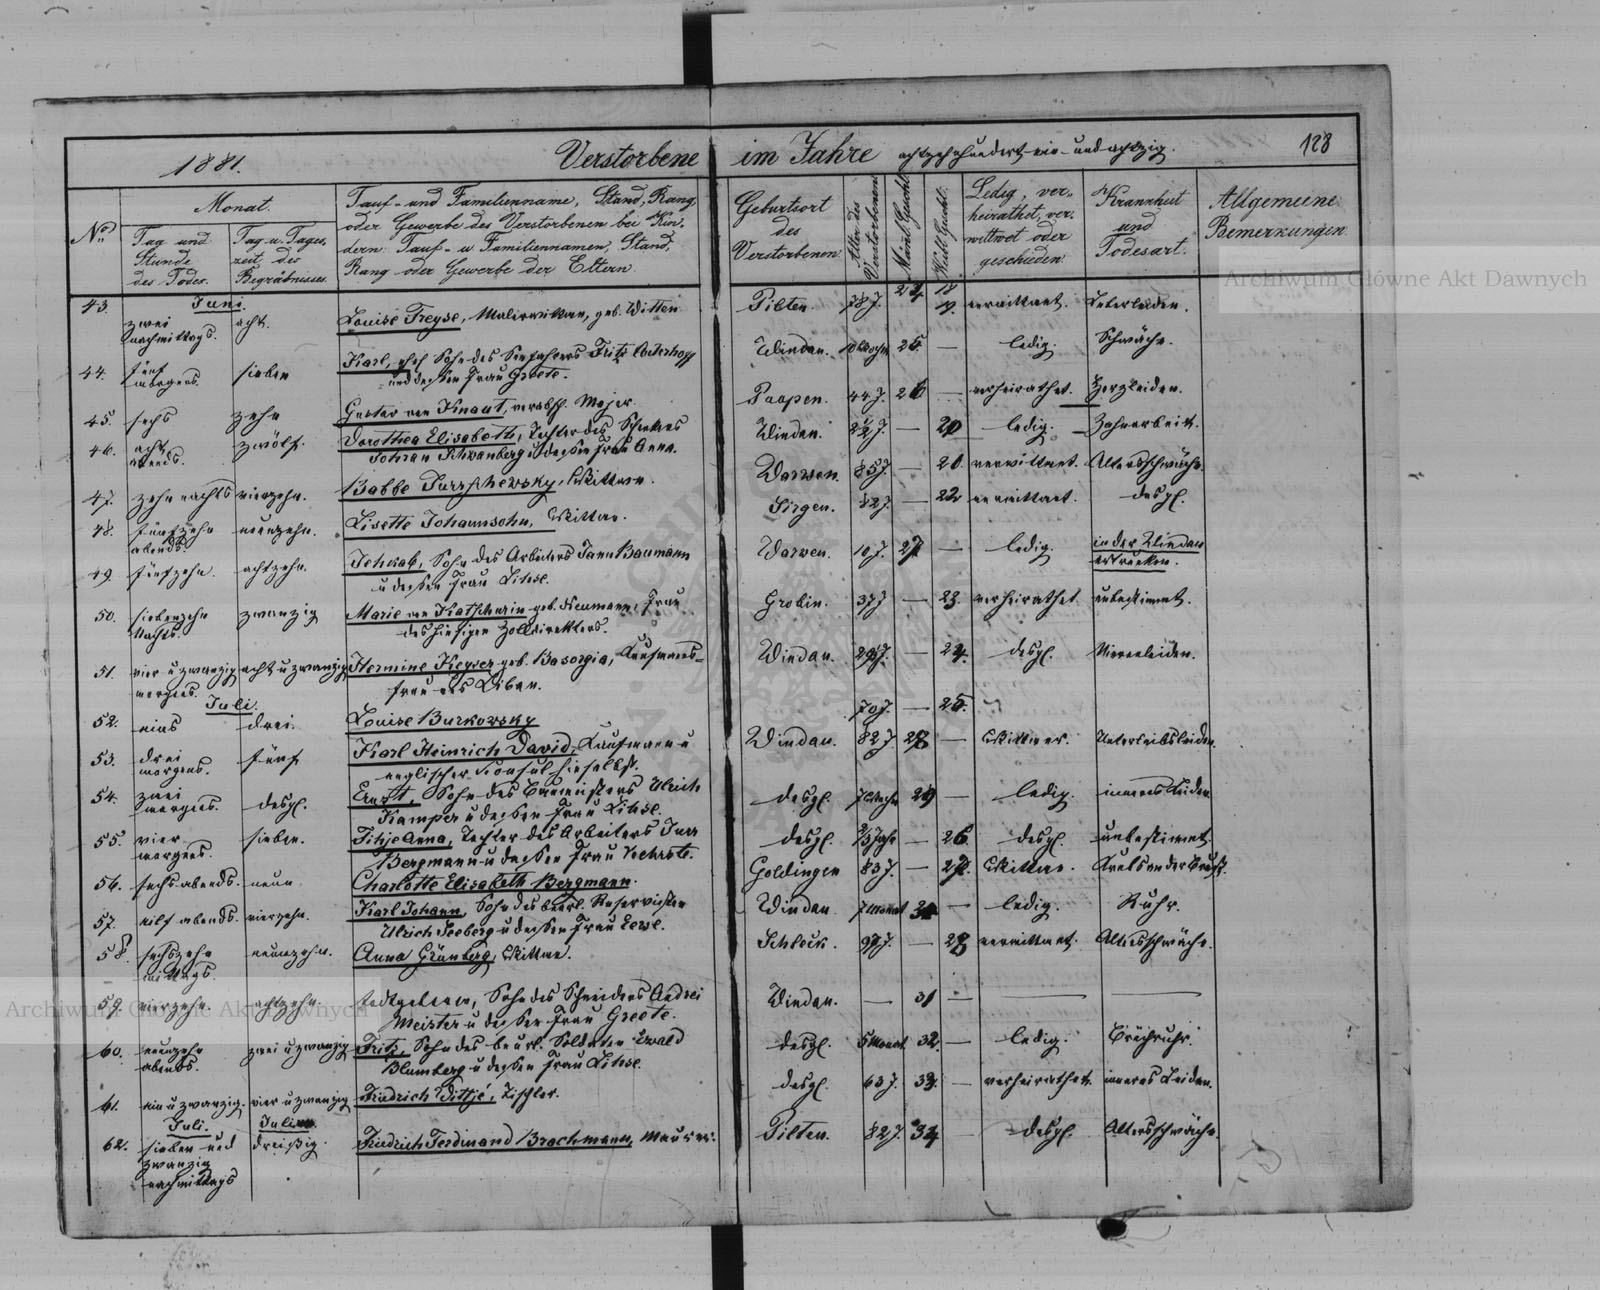 1881. Verstorbene im Jahre achtzehnhundert ein- und achtzig. 128
No.
Monat.
Tag und Stunde des Todes.
Tag u. Tageszeit des Begräbnisses.
Tauf- und Familienname, Stand, Rang
oder Gewerbe des Verstorbenen bei Kin-
dern: Tauf- u Familiennamen, Stand,
Rang oder Gewerbe der Eltern.
Geburtsort
des
Verstorbenen.
Alter des Verstorbenen
Männl. Geschl.
Weibl. Geschl.
Ledig, ver-
heirathet, ver-
wittwet oder
geschieden.
Krankheit
und
Todesart.
Allgemeine
Bemerkungen.
Juni.
43. zwei nachmittags. acht. Louise Freyse, Malerwittwe, geb. Witten Pilten. 78 J. 19. verwittwet. Leberleiden.
44. fünf morgens. sieben Karl, Sohn des Seefahrers Fritz
und dessen Frau Greete. Windau. 25. — ledig. Schwäche.
45. sechs zehn Gustav von Knaut, verabsch. Major. Paapen. 44 J. 26 — verheirathet. Herzleiden.
46. acht abends. zwölf. Dorothea Elisabeth, Tochter des
Johann Schwanberg u dessen Frau Anna. Windau. — 20 ledig. Zahnarbeit.
47. zehn nachts vierzehn. Babbe Wittwe. Warwen. 85 J. — 21. verwittwet. Altersschwäche.
48. fünfzehn abends. neunzehn. Lisette Johannsohn, Wittwe. Sirgen. 82 J. — 22 verwittwet. desgl.
49. fünfzehn. achtzehn. Jehkab, Sohn des Arbeiters Jann Baumann
u dessen Frau Lihse. Warwen. 10 J. 27. — ledig. in der Windau
ertrunken.
50. siebenzehn Nachts. zwanzig Marie von geb. Neumann, Frau
des hiesigen Zolldirektors. Grobin. 37 J — 23. verheirathet. unbestimmt.
51. vier u zwanzig morgens. acht u zwanzig Hermine Keyser geb. Kaufmanns-
frau aus Libau. Windau. — 24. desgl. Nierenleiden.
Juli.
52. eins drei. Louise Burkowsky 70 J. — 25.
53. drei morgens. fünf Karl Heinrich David, Kaufmann u
englischer Konsul hieselbst. Windau. 82 J 28 — Wittwer. Unterleibsleiden.
54. zwei morgens. desgl. Ernst, Sohn des Ulrich
Kamper u dessen Frau Lihse. desgl. 29 — ledig. inneres Leiden
55. vier morgens. sieben. Tihje Anna, Tochter des Arbeiters Jurr
Bergmann u dessen Frau desgl. — 26. desgl. unbestimmt.
56. sechs abends. neun Charlotte Elisabeth Bergmann. Goldingen 83 J. — 27. Wittwe. Krebs an der Brust.
57. elf abends. vierzehn. Karl Johann, Sohn des beurl. Reservisten
Ulrich Seeberg u dessen Frau Windau 7 Monat 30 — ledig. Ruhr.
58. sechszehn mittags. neunzehn. Anna Grünberg, Wittwe. Schleck. 97 J. — 28 verwittwet. Altersschwäche.
59. vierzehn. achtzehn. todtgeboren, Sohn des Schneiders Andrei
Meister u dessen Frau Greete. Windau. — 31 — — —
60. neunzehn abends. zwei u zwanzig Fritz, Sohn des beurl. Soldaten Ewald
Blumberg u dessen Frau Lihse. desgl. 5 Monat 32. — ledig. Brechruhr.
61. ein u zwanzig. vier u zwanzig Friedrich Tischler. desgl. 63 J. 33. — verheirathet. inneres Leiden.
Juli. Juli
62. sieben und dreißig. Friedrich Ferdinand Brachmann, Maurer. Pilten. 82 J. 34 — desgl. Altersschwäche
zwanzig
nachmittags
Archiwum Główne Akt Dawnych
Archiwum Główne Akt Dawnych